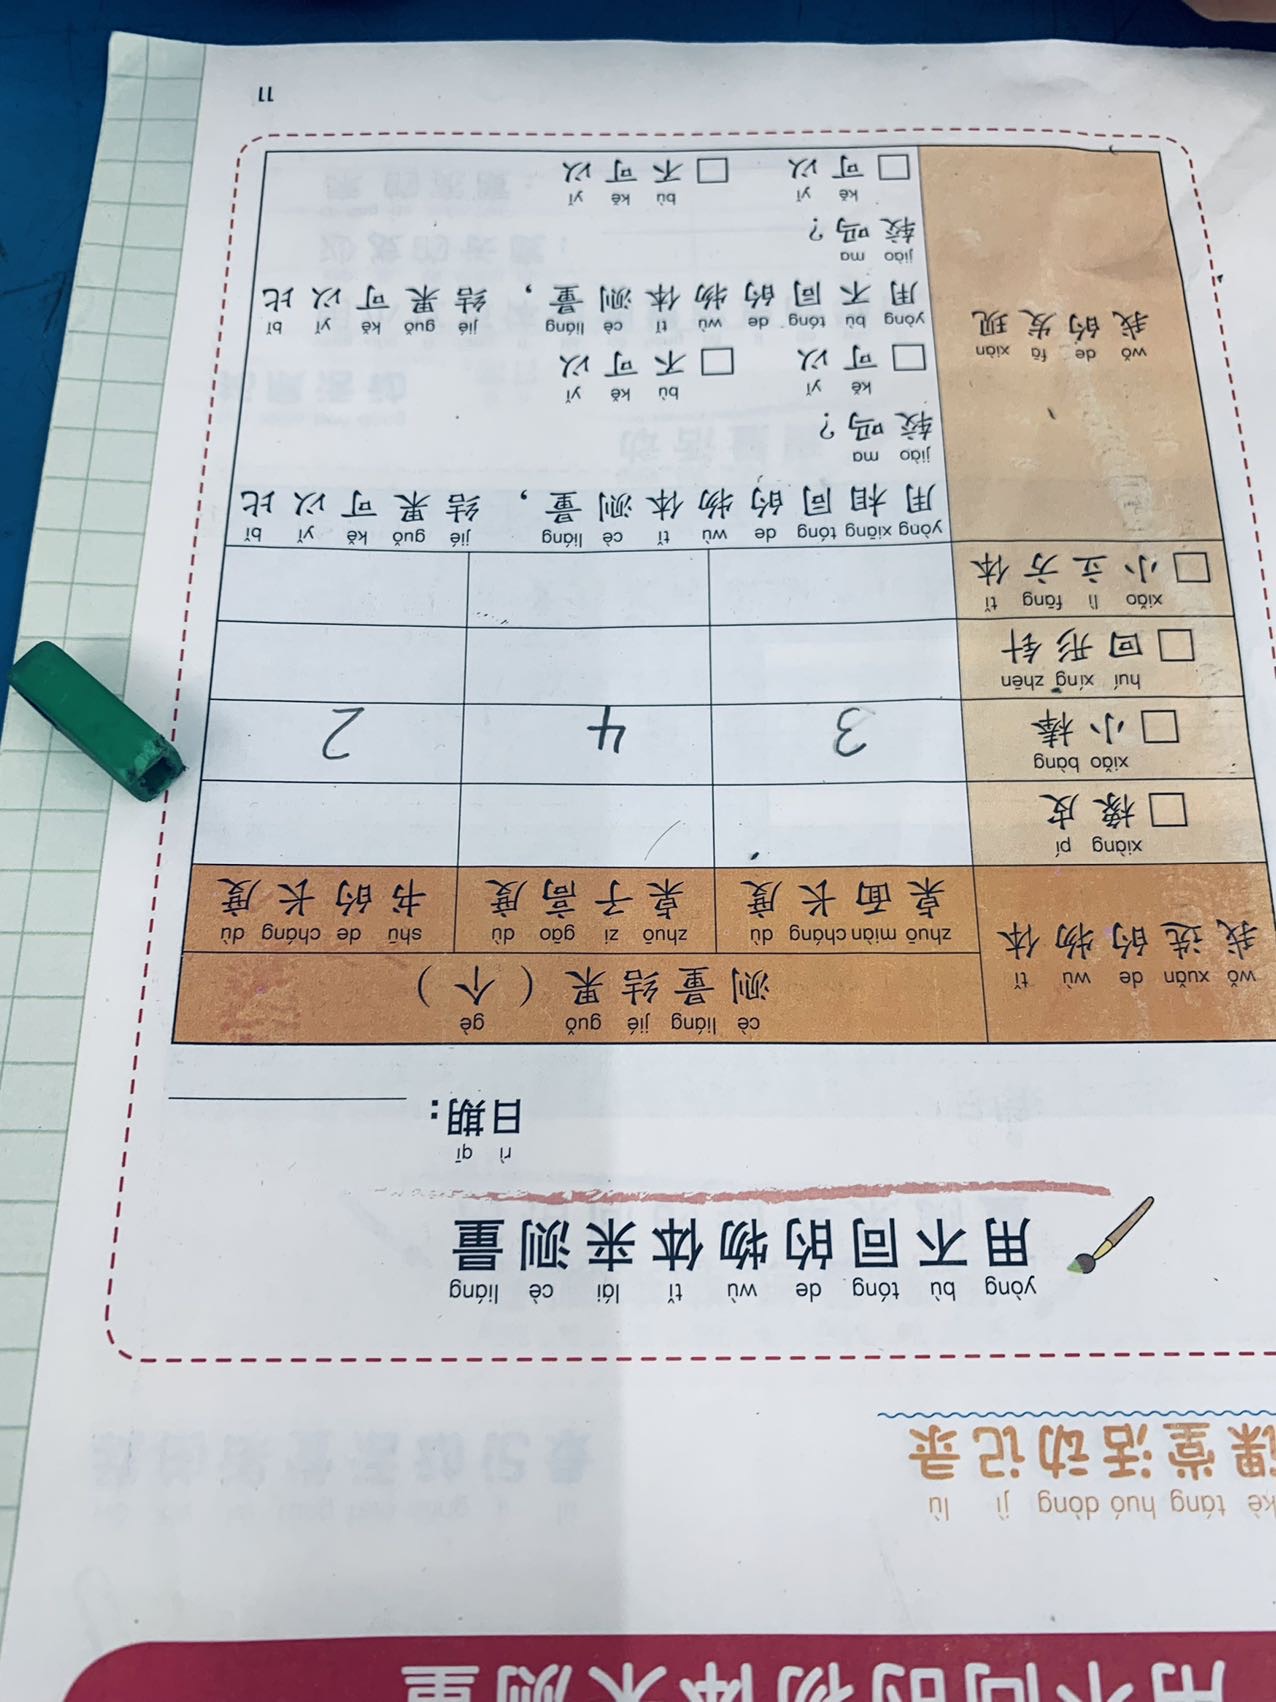 用不同的物体来测量
kè táng huó dòng jì lù
课堂活动记录
yòng bù tóng de wù tǐ lái cè liáng
用不同的物体来测量
rì qī
日期：
wǒ xuǎn de wù tǐ
我选的物体
cè liáng jié guǒ gè
测量结果（个）
zhuō miàn cháng dù
桌面长度
zhuō zi gāo dù
桌子高度
shū de cháng dù
书的长度
xiàng pí
□橡皮
xiǎo bàng
□小棒 3 4 2
huí xíng zhēn
□回形针
xiǎo lì fāng tǐ
□小立方体
wǒ de fā xiàn
我的发现
yòng xiāng tóng de wù tǐ cè liáng jié guǒ kě yǐ bǐ
用相同的物体测量，结果可以比
jiào ma
较吗？
kě yǐ bù kě yǐ
□可以 □不可以
yòng bù tóng de wù tǐ cè liáng jié guǒ kě yǐ bǐ
用不同的物体测量，结果可以比
jiào ma
较吗？
kě yǐ bù kě yǐ
□可以 □不可以
11